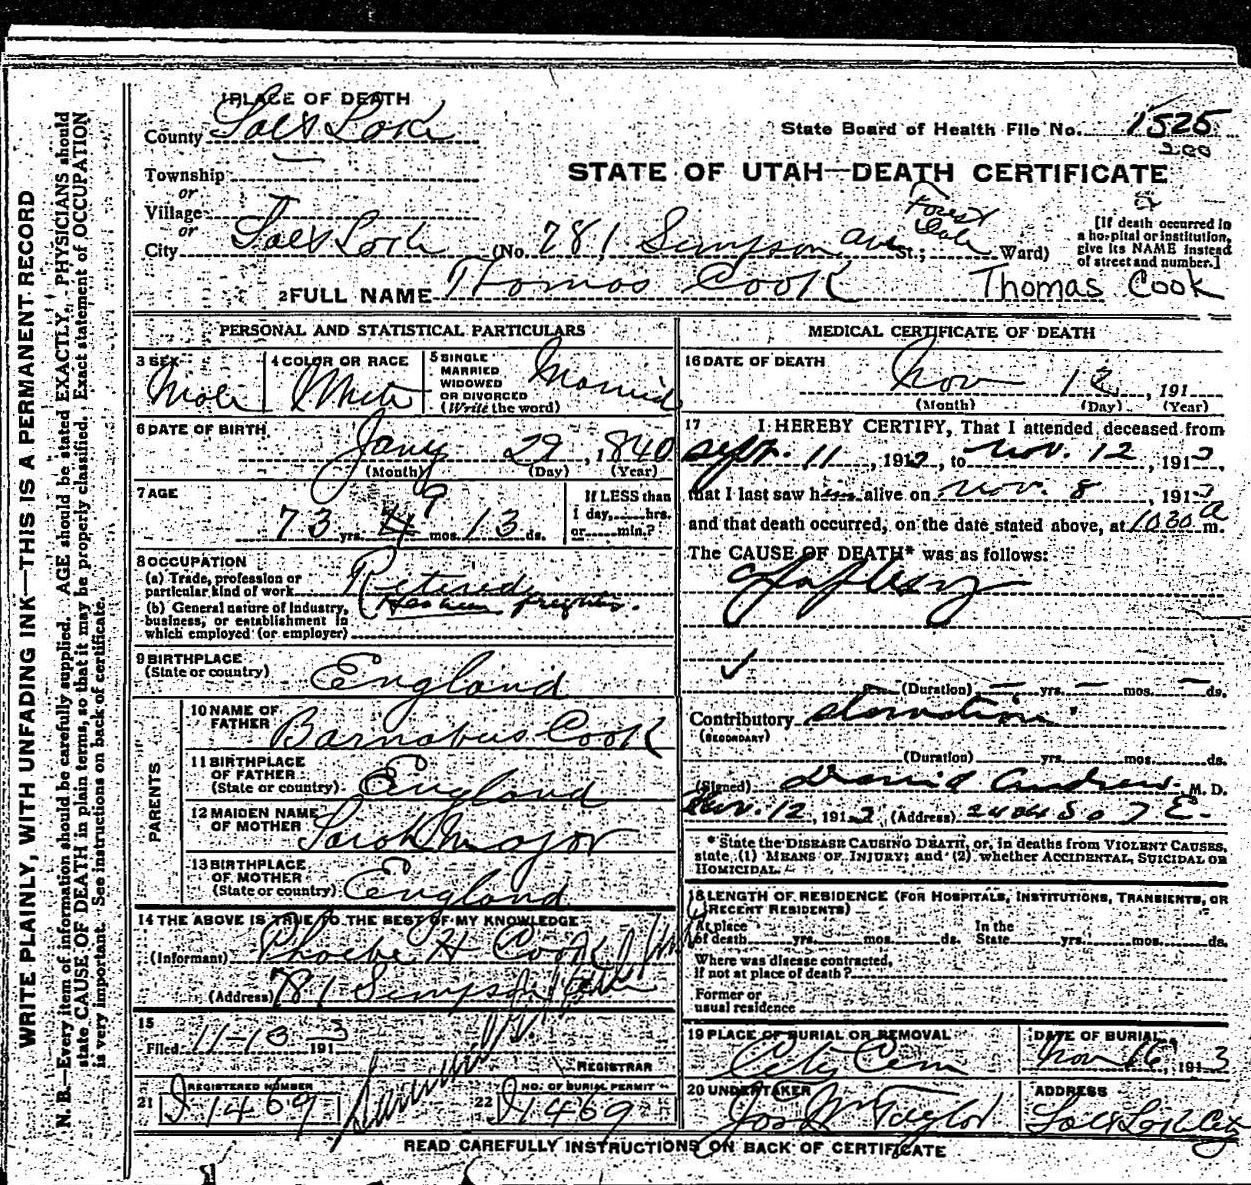 WRITE PLAINLY, WITH UNFADING INK—THIS IS A PERMANENT RECORD
N. B.—Every item of information should be carefully supplied. AGE should be stated EXACTLY. PHYSICIANS should
state CAUSE OF DEATH in plain terms, so that it may be properly classified. Exact statement of OCCUPATION
is very important. See instructions on back of certificate.
1 PLACE OF DEATH
County Salt Lake
State Board of Health File No. 1525
200
Township
or
Village
or
STATE OF UTAH—DEATH CERTIFICATE
City Salt Lake (No. 781 Simpson Ave St.; Forest Dale Ward)
[If death occurred in
a hospital or institution,
give its NAME instead
of street and number.]
2 FULL NAME Thomas Cook Thomas Cook
PERSONAL AND STATISTICAL PARTICULARS
3 SEX Male
4 COLOR OR RACE White
5 SINGLE
MARRIED
WIDOWED
OR DIVORCED
(Write the word) Married
6 DATE OF BIRTH
Jany 29, 1840
(Month) (Day) (Year)
7 AGE
73 yrs. 9 mos. 13 ds.
If LESS than
1 day, hrs.
or min.?
8 OCCUPATION
(a) Trade, profession or
particular kind of work Retired
(b) General nature of Industry,
business, or establishment in
which employed (or employer)
9 BIRTHPLACE
(State or country) England
PARENTS
10 NAME OF
FATHER Barnabus Cook
11 BIRTHPLACE
OF FATHER
(State or country) England
12 MAIDEN NAME
OF MOTHER Sarah Major
13 BIRTHPLACE
OF MOTHER
(State or country) England
14 THE ABOVE IS TRUE TO THE BEST OF MY KNOWLEDGE
(Informant) Phoebe H Cook
(Address) 781 Simpson
15
Filed 11-13 1913
REGISTRAR
21 REGISTERED NUMBER 1469
22 NO. OF BURIAL PERMIT 1469
MEDICAL CERTIFICATE OF DEATH
16 DATE OF DEATH
Nov 12, 191
(Month) (Day) (Year)
17 I HEREBY CERTIFY, That I attended deceased from
Sept. 11, 191, to Nov. 12, 191
that I last saw him alive on Nov. 8, 191
and that death occurred, on the date stated above, at 1030 a m.
The CAUSE OF DEATH* was as follows:
(Duration) yrs. mos. ds.
Contributory starvation
(SECONDARY)
(Duration) yrs. mos. ds.
(Signed) M. D.
Nov. 12, 191 (Address) 2404 So 7 E.
* State the DISEASE CAUSING DEATH, or, in deaths from VIOLENT CAUSES,
state (1) MEANS OF INJURY; and (2) whether ACCIDENTAL, SUICIDAL OR
HOMICIDAL.
18 LENGTH OF RESIDENCE (FOR HOSPITALS, INSTITUTIONS, TRANSIENTS, OR
RECENT RESIDENTS)
At place
of death yrs. mos. ds.
In the
State yrs. mos. ds.
Where was disease contracted,
if not at place of death?
Former or
usual residence
19 PLACE OF BURIAL OR REMOVAL
City Cem
DATE OF BURIAL
Nov 16, 1913
20 UNDERTAKER
Jos Wm Taylor
ADDRESS
Salt Lake City
READ CAREFULLY INSTRUCTIONS ON BACK OF CERTIFICATE